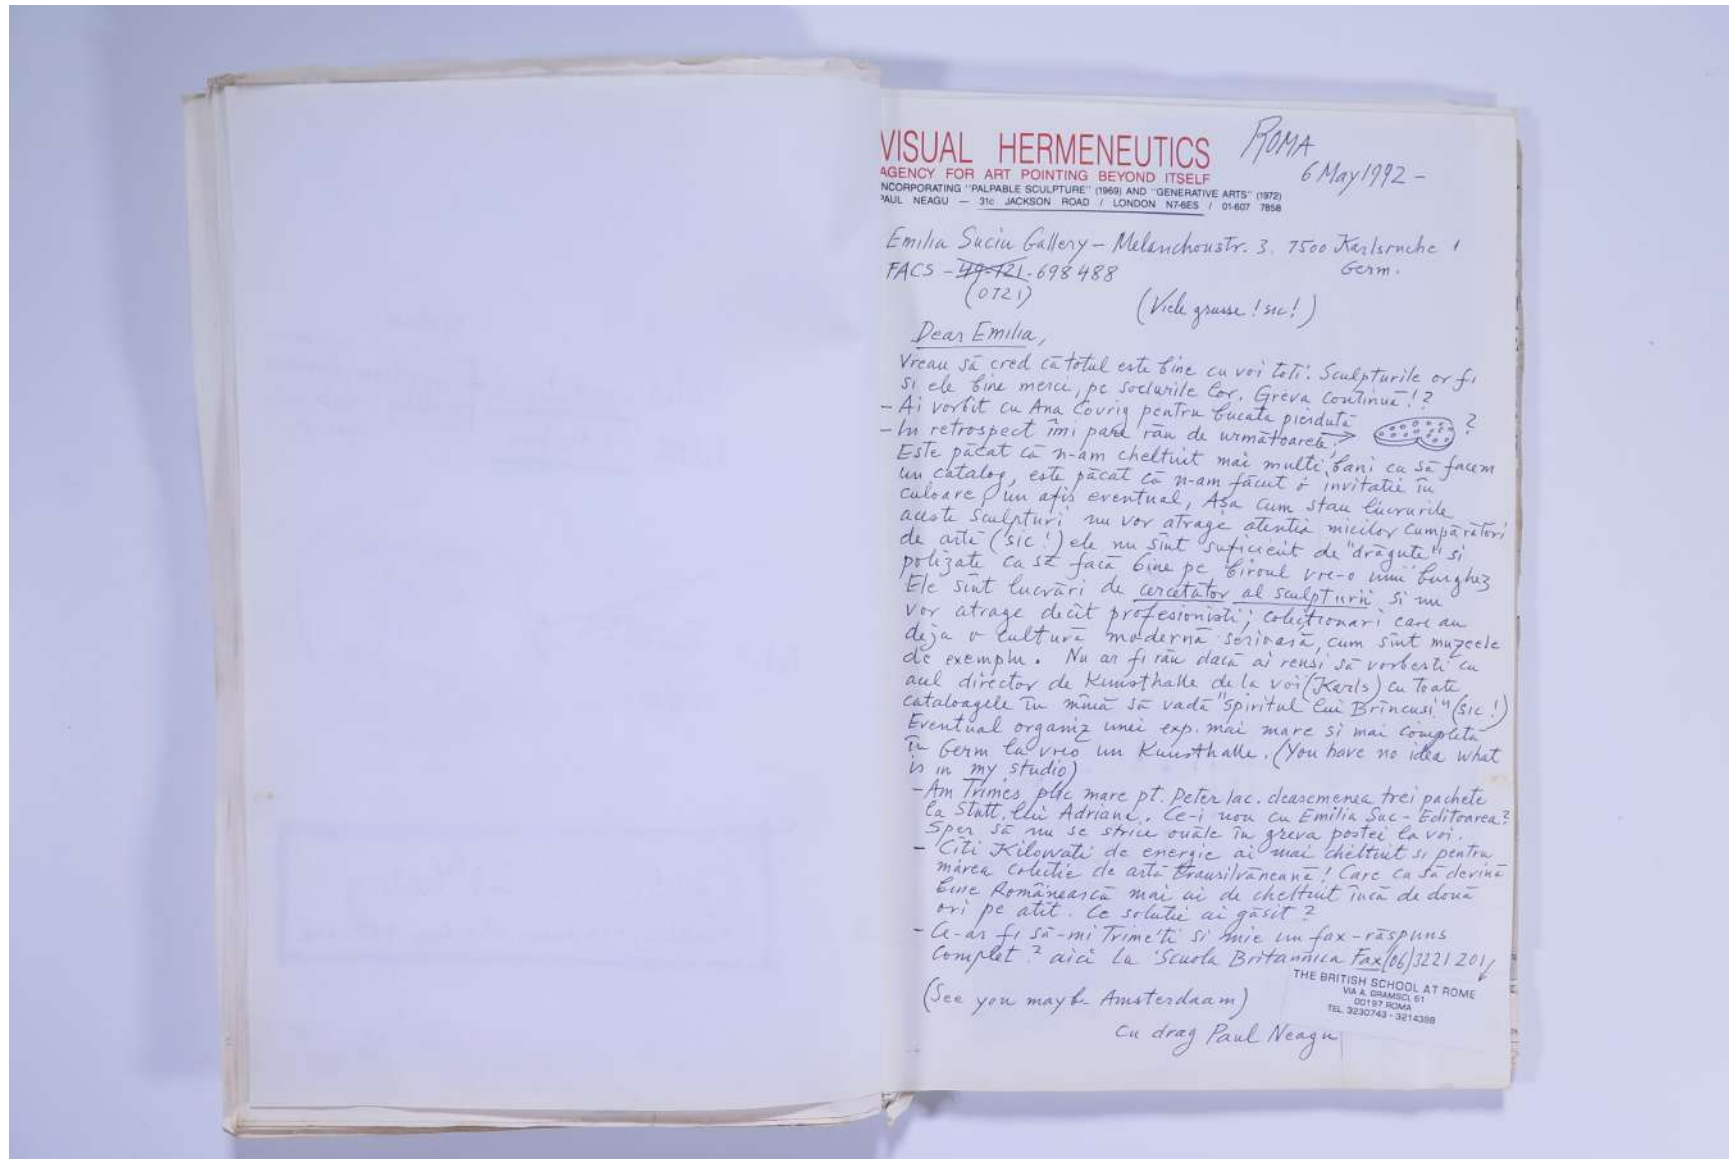 VISUAL HERMENEUTICS
AGENCY FOR ART POINTING BEYOND ITSELF
INCORPORATING "PALPABLE SCULPTURE" (1969) AND "GENERATIVE ARTS" (1972)
PAUL NEAGU — 31c JACKSON ROAD / LONDON N7-6ES / 01-607 7858
ROMA
6 May 1992 -
Emilia Suciu Gallery - Melanchonstr. 3. 7500 Karlsruche
Germ.
FACS - 49-721-698488
(0721)
(Viele grusse ! sic!)
Dear Emilia,
Vreau să cred că totul este bine cu voi toti. Sculpturile or fi
si ele bine merci, pe soclurile lor. Greva continuă!?
- Ai vorbit cu Ana Covrig pentru bucata pierdută ?
- In retrospect îmi pare rău de următoarele!
Este păcat că n-am cheltuit mai multi bani ca să facem
un catalog, este păcat că n-am făcut o invitatie în
culoare, un afis eventual, Asa cum stau lucrurile
aceste sculpturi nu vor atrage atentia micilor cumpărători
de artă (sic!) ele nu sînt suficient de "drăgute" si
polizate ca să facă bine pe biroul vre-o unui burghez
Ele sînt lucrări de cercetător al sculpturii si nu
vor atrage decît profesionisti; colectionari care au
deja o cultură modernă serioasă, cum sînt muzeele
de exemplu. Nu ar fi rău dacă ai reusi să vorbesti cu
acel director de Kunsthalle de la voi (Karls) cu toate
cataloagele în mînă să vadă "Spiritul lui Brîncusi" (sic!)
Eventual organiz unei exp. mai mare si mai completă
în Germ la vreo un Kunsthalle. (You have no idea what
is in my studio)
- Am Trimes plic mare pt. Peter Iac. deasemenea trei pachete
la Statt. lui Adriani. Ce-i nou cu Emilia Suc - Editoarea?
Sper să nu se strice ouăle în greva postei la voi.
- Cîti Kilowati de energie ai mai cheltuit si pentru
marea colectie de artă transilvăneană! Care ca să devină
bine Românească mai ai de cheltuit încă de două
ori pe atît. Ce solutie ai găsit?
- Ce-ar fi să-mi Trimeti si mie un fax-răspuns
complet? aici la Scuola Britannica Fax (06) 3221 201
THE BRITISH SCHOOL AT ROME
VIA A. GRAMSCI, 61
00197 ROMA
TEL. 3230743 - 3214398
(See you maybe Amsterdaam)
Cu drag Paul Neagu